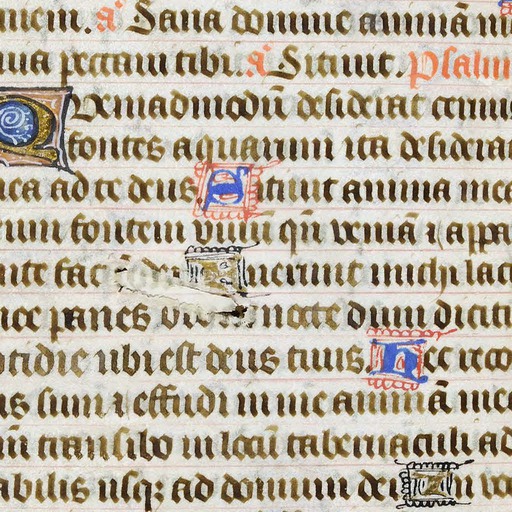 mem. a Sana domine animā m
ua peccaui tibi. a Sitiuit. Psalm
Quemadmodū desiderat ceruus
fontes aquarum ita desiderat
ea ad te deus Sitiuit anima mea
eum fontem viuū qn̄ veniā ⁊ appa
ante faciē dei Fuerunt michi lac
ee panes die ac nocte dum dicit
otidie ubi est deus tuus. Hec reco
us sum ⁊ effudi in me animā mea
m̄ transibo in locū tabernaculi ad
abilis usqꝫ ad domum dei In vo